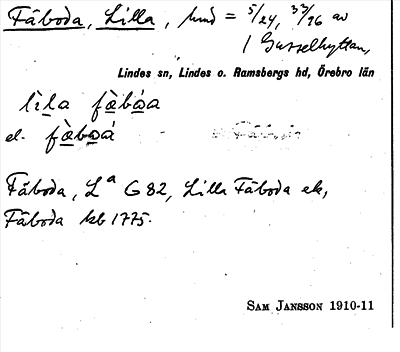 Fäboda, Lilla, hmd = 5/24, 33/96 av
1 Gusselhyttan,
Lindes sn, Lindes o. Ramsbergs hd, Örebro län
lìla fæ̀bo̱a
el. fæ̀bo̱á
Fäboda, Lª G 82, Lilla Fäboda ek,
Fäboda kb 1775.
SAM JANSSON 1910-11